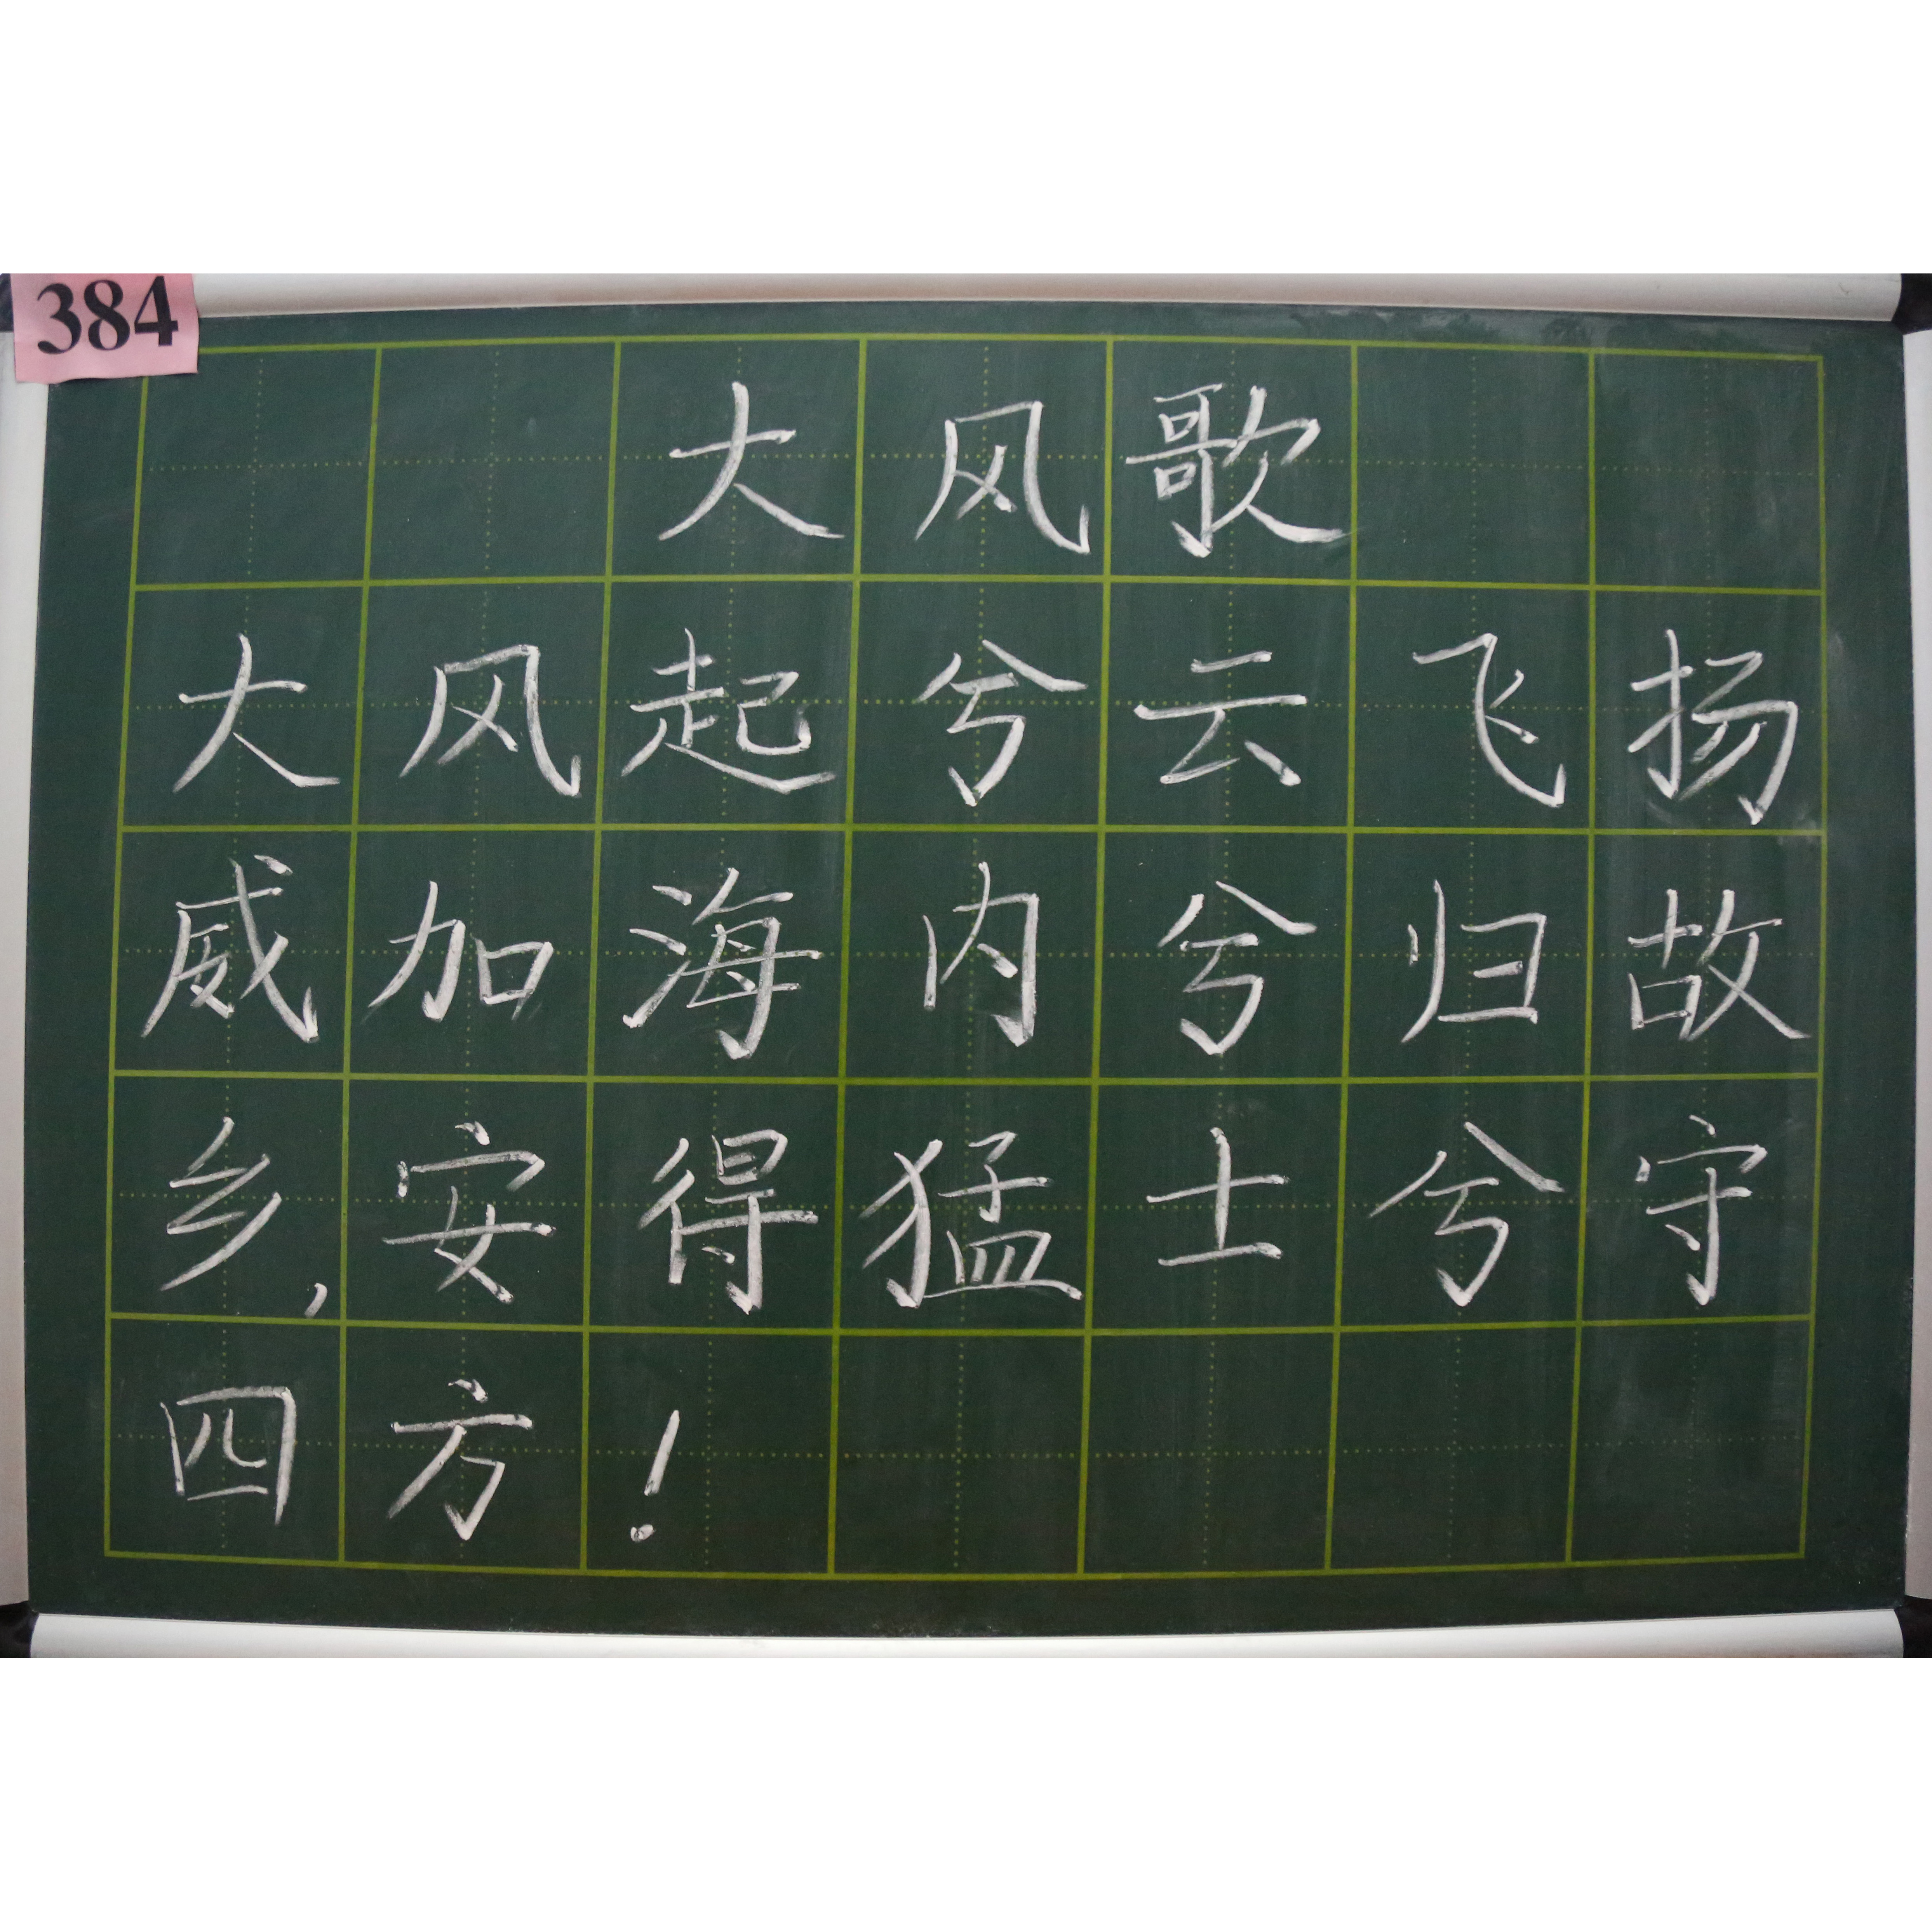 384
大风歌
大风起兮云飞扬
威加海内兮归故
乡,安得猛士兮守
四方!